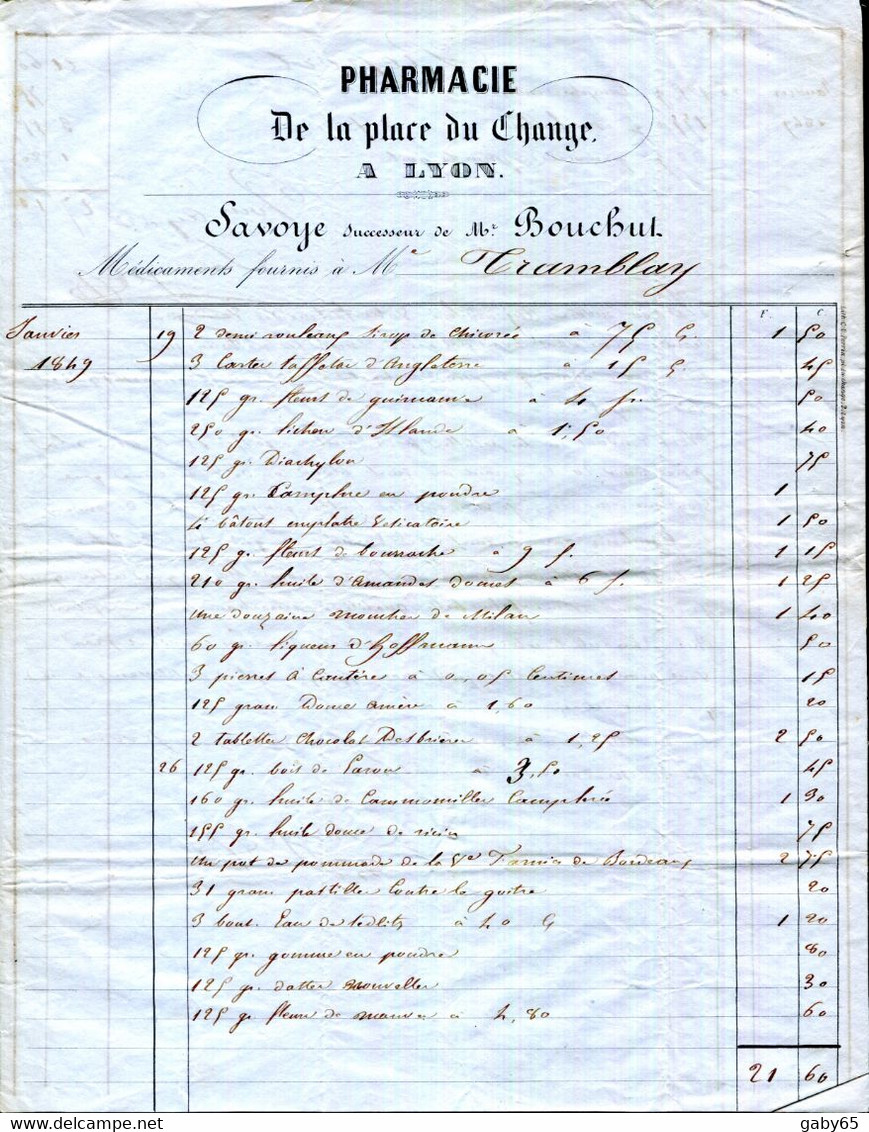 PHARMACIE
De la place du Change,
A LYON.
Savoye Successeur de Mr. Bouchut
Médicaments fournis à Me Tramblay
F. C
Janvier 19 2 demi rouleaux Sirop de Chicorée à 75 C. 1 50
1849 3 Cartes taffetas d'Angleterre à 15 C. 45
125 gr. fleurs de guimauve à 4 fr. 50
250 gr. lichen d'Islande à 1,50 40
125 gr. Diachylon 75
125 gr. Camphre en poudre 1
4 bâtons emplatre Vesicatoire 1 50
125 gr. fleurs de bourrache à 9 f. 1 15
210 gr. huile d'Amandes douces à 6 f. 1 25
une douzaine mouches de Milan 1 40
60 gr. liqueur d'hoffmann 50
3 pierres à Cautère à 0,05 Centimes 15
125 gram Douce amère à 1,60 20
2 tablettes Chocolat Desbrieres à 1,25 2 50
26 125 gr. bois de à 3,50 45
160 gr. huile de Cammomilles Camphrée 1 30
155 gr. huile douce de ricin 75
un pot de pommade de la Ve Farnier de Bordeaux 2 75
31 gram pastilles Contre le goitre 20
3 bout. Eau de Sedlitz à 40 C 1 20
125 gr. gomme en poudre 80
125 gr. dattes nouvelles 30
125 gr. fleurs de mauves à 4,80 60
21 60
www.delcampe.net
gaby65